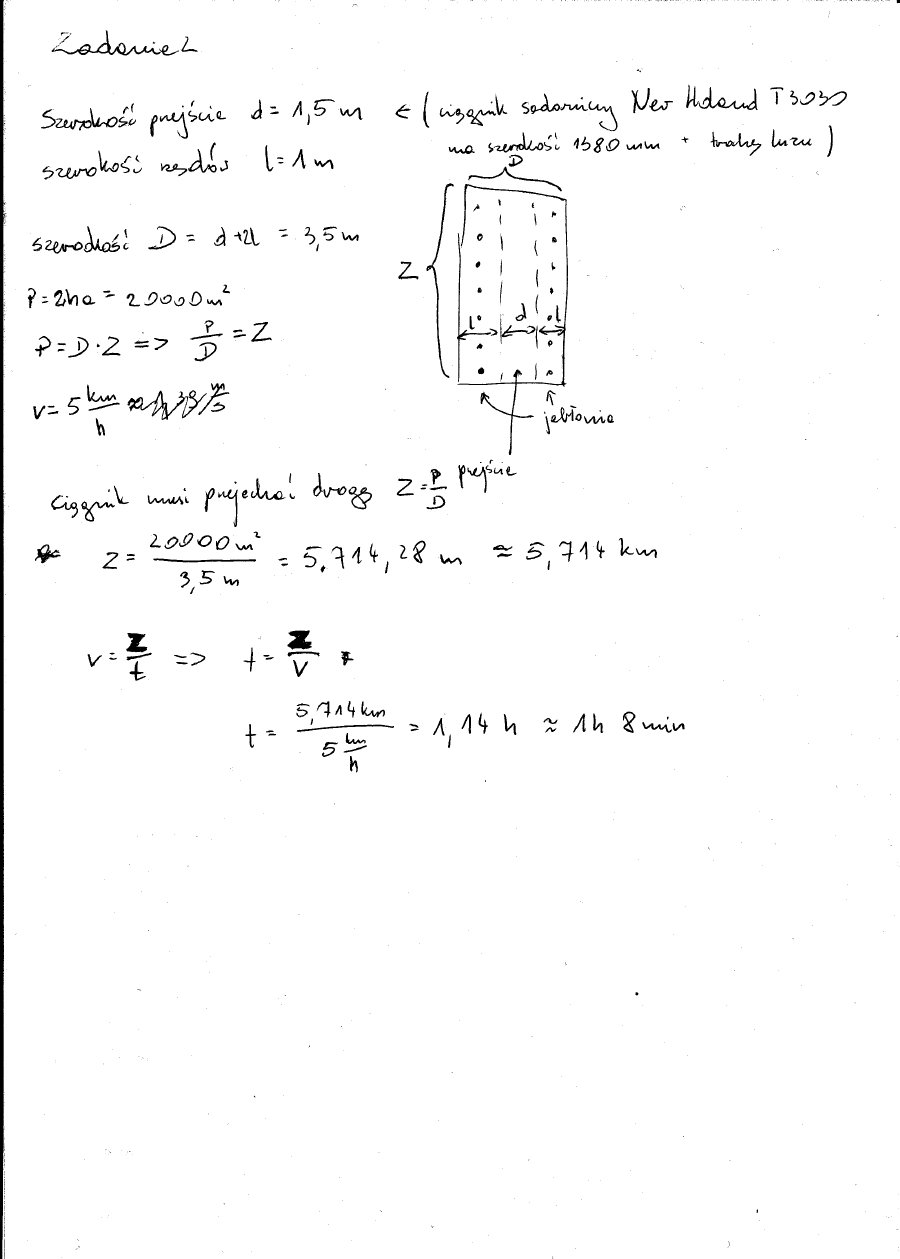 Zadanie 2
Szerokość przejścia d = 1,5 m ← ( ciągnik sadowniczy New Holland T3030
ma szerokość 1380 mm + trochę luzu )
szerokość rzędów l = 1 m
D
szerokość D = d + 2l = 3,5 m
Z
P = 2ha = 20000 m²
P = D · Z => P/D = Z
l d l
v = 5 km/h
jabłonie
przejście
Ciągnik musi przejechać drogę Z = P/D
Z = 20000 m² / 3,5 m = 5.714,28 m ≈ 5,714 km
v = Z/t => t = Z/v
t = 5,714 km / 5 km/h = 1,14 h ≈ 1h 8 min